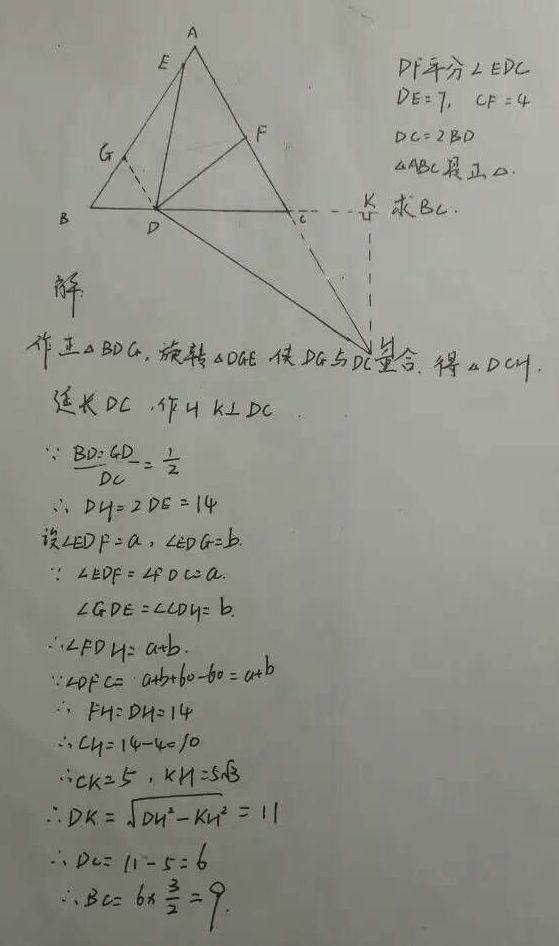 A
E
DF平分∠EDC
DE=7, CF=4
F
DC=2BD
G
△ABC是正△.
K
求BC.
B
D
C
H
解:
作正△BDG, 旋转△DGE 使DG与DC重合. 得△DCH.
延长DC,作HK⊥DC
∵ BD=GD/DC=1/2
∴ DH=2DE=14
设∠EDF=a, ∠EDG=b.
∵ ∠EDF=∠FDC=a.
∠GDE=∠CDH=b.
∴∠FDH=a+b.
∵∠DFC= a+b+60-60=a+b
∴ FH=DH=14
∴CH=14-4=10
∴CK=5, KH=5√3
∴DK=√DH²-KH² = 11
∴ DC=11-5=6
∴BC=6×3/2=9.